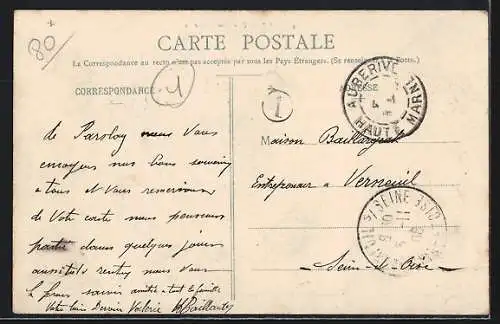 80
CARTE POSTALE
La Correspondance au recto n'est pas acceptée par tous les Pays Étrangers. (Se renseigner aux Postes.)
CORRESPONDANCE
1
1
ADRESSE
AUBERIVE
HAUTE MARNE
de Parsloy nous Vous
envoyons nos bons souvenirs
a tous et Vous remercions
de Votre carte nous pensons
partir dans quelques jours
aussitôt rentrer nous Vous
amitiés a tout la famille
Valerie
Maison
Entrepreneur a Verneuil
Seine et Oise
SEINE